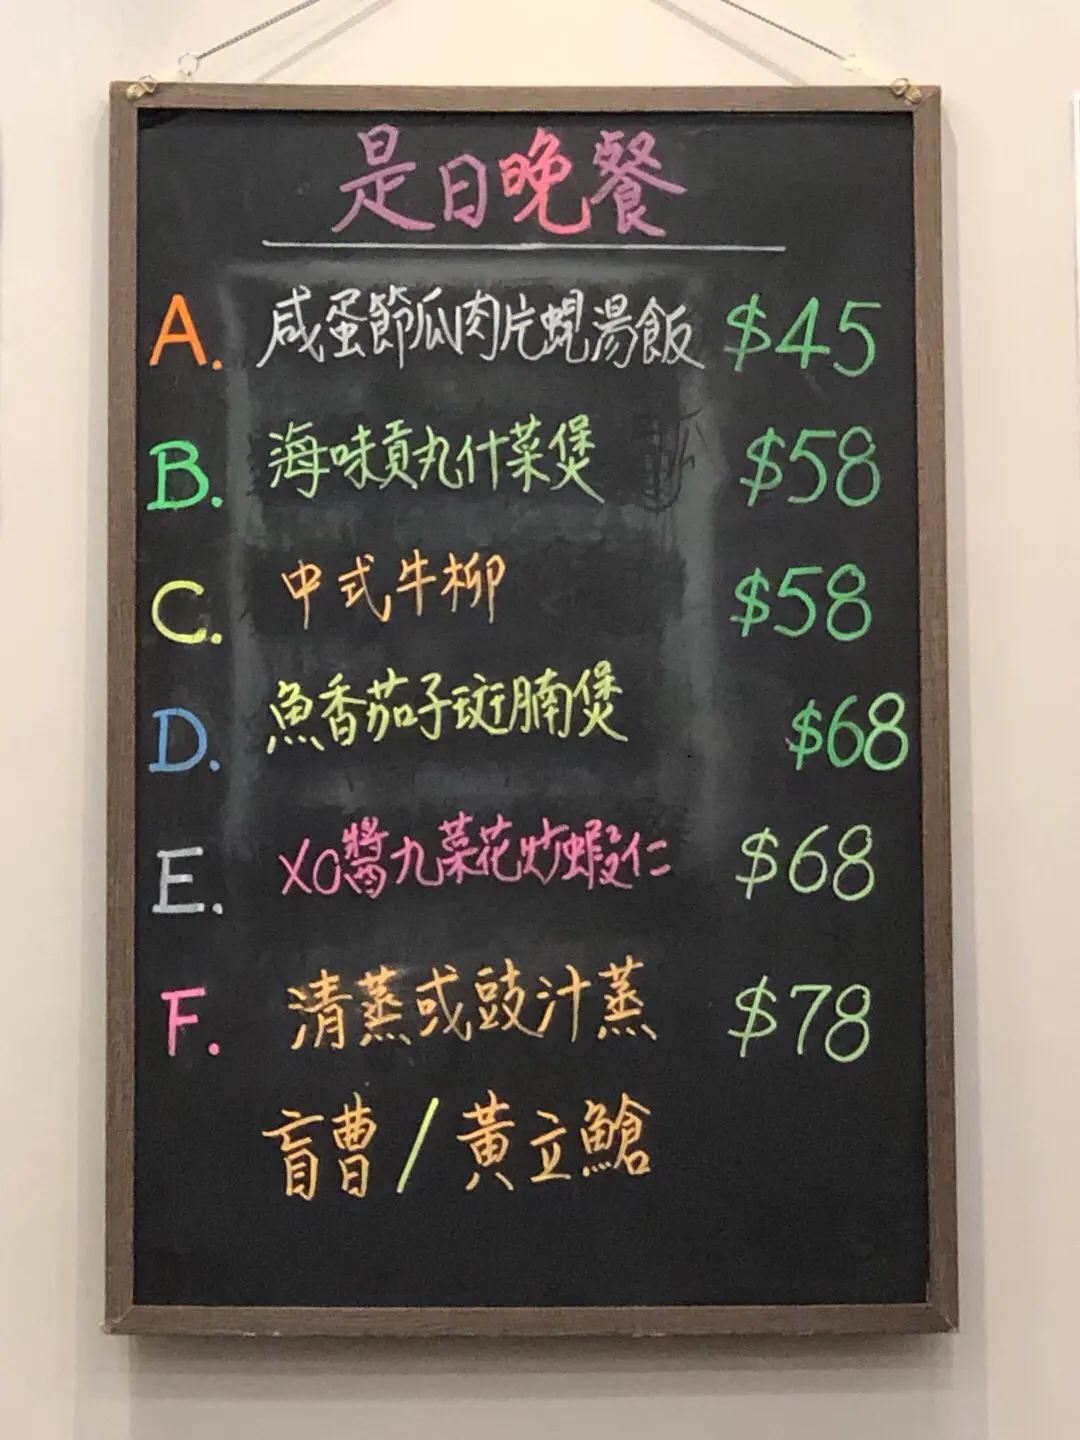 是日晚餐
A. 咸蛋節瓜肉片蜆湯飯 $45
B. 海味貢丸什菜煲 $58
C. 中式牛柳 $58
D. 魚香茄子斑腩煲 $68
E. XO醬九菜花炒蝦仁 $68
F. 清蒸或豉汁蒸 $78
盲曹/黃立鯧